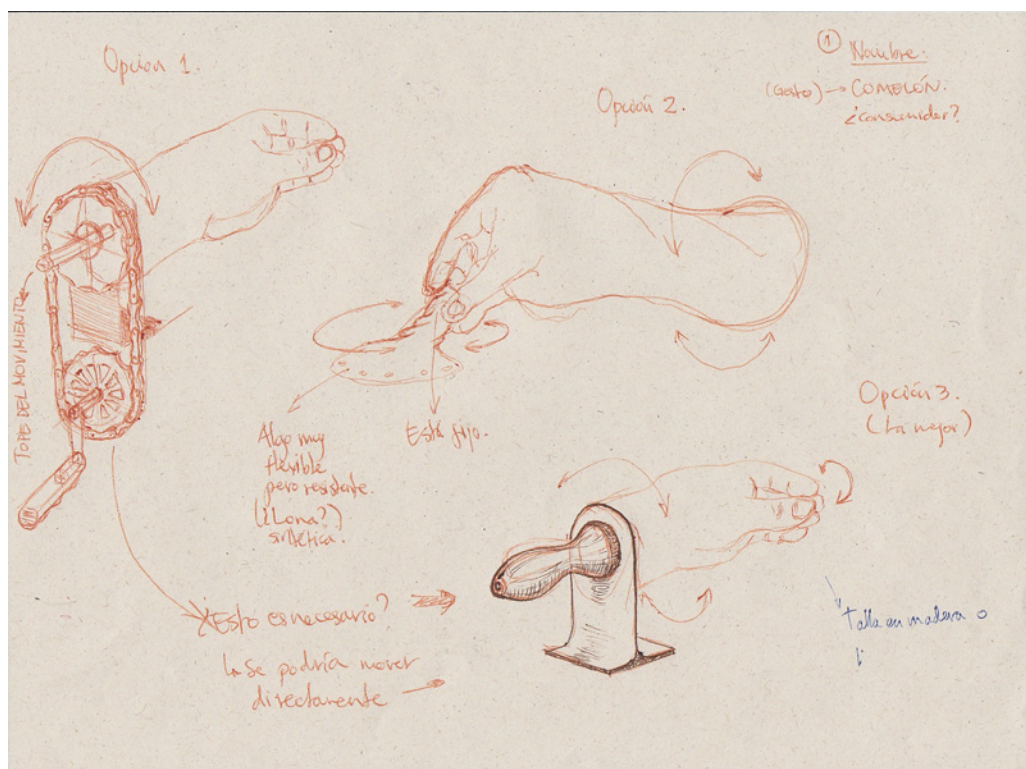 Opción 1.
Opción 2.
① Nombre.
(Gesto) → COMELÓN.
¿consumidor?
TOPE DEL MOVIMIENTO
Algo muy
flexible
pero resistente.
(¿Lona?)
sintética.
Está fijo.
Opción 3.
(La mejor)
¿Esto es necesario?
Se podría mover
directamente
Talla en madera o